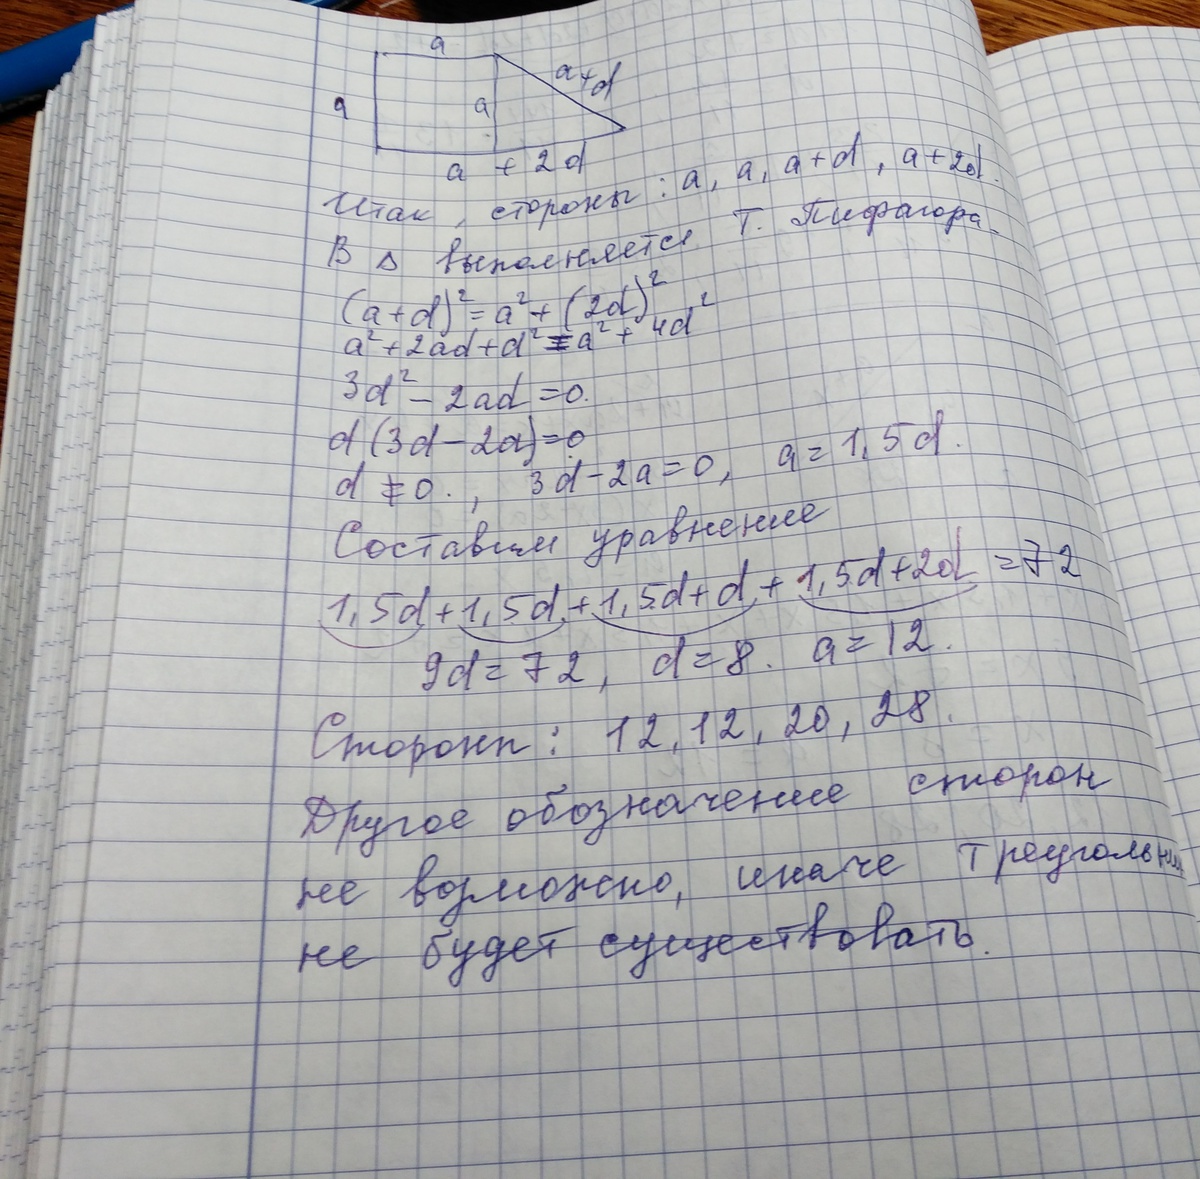 a
a
a
a+d
a + 2d
Итак, стороны: a, a, a+d, a+2d.
В Δ выполняется т. Пифагора.
(a+d)² = a² + (2d)²
a² + 2ad + d² = a² + 4d²
3d² - 2ad = 0.
d(3d - 2a) = 0
d ≠ 0., 3d - 2a = 0, a = 1,5d.
Составим уравнение
1,5d + 1,5d + 1,5d+d + 1,5d+2d = 72
9d = 72, d = 8. a = 12.
Стороны: 12, 12, 20, 28.
Другое обозначение сторон
не возможно, иначе треугольник
не будет существовать.